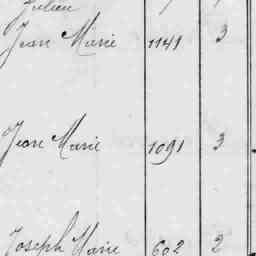 Julien
Jean Marie 1141 3
Jean Marie 1091 3
Joseph Marie 602 2